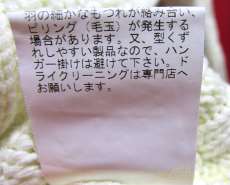 羽の細かなもつれが絡み合い、
ピリング（毛玉）が発生する
場合があります。又、型くず
れしやすい製品なので、ハン
ガー掛けは避けて下さい。ド
ライクリーニングは専門店へ
お願いします。